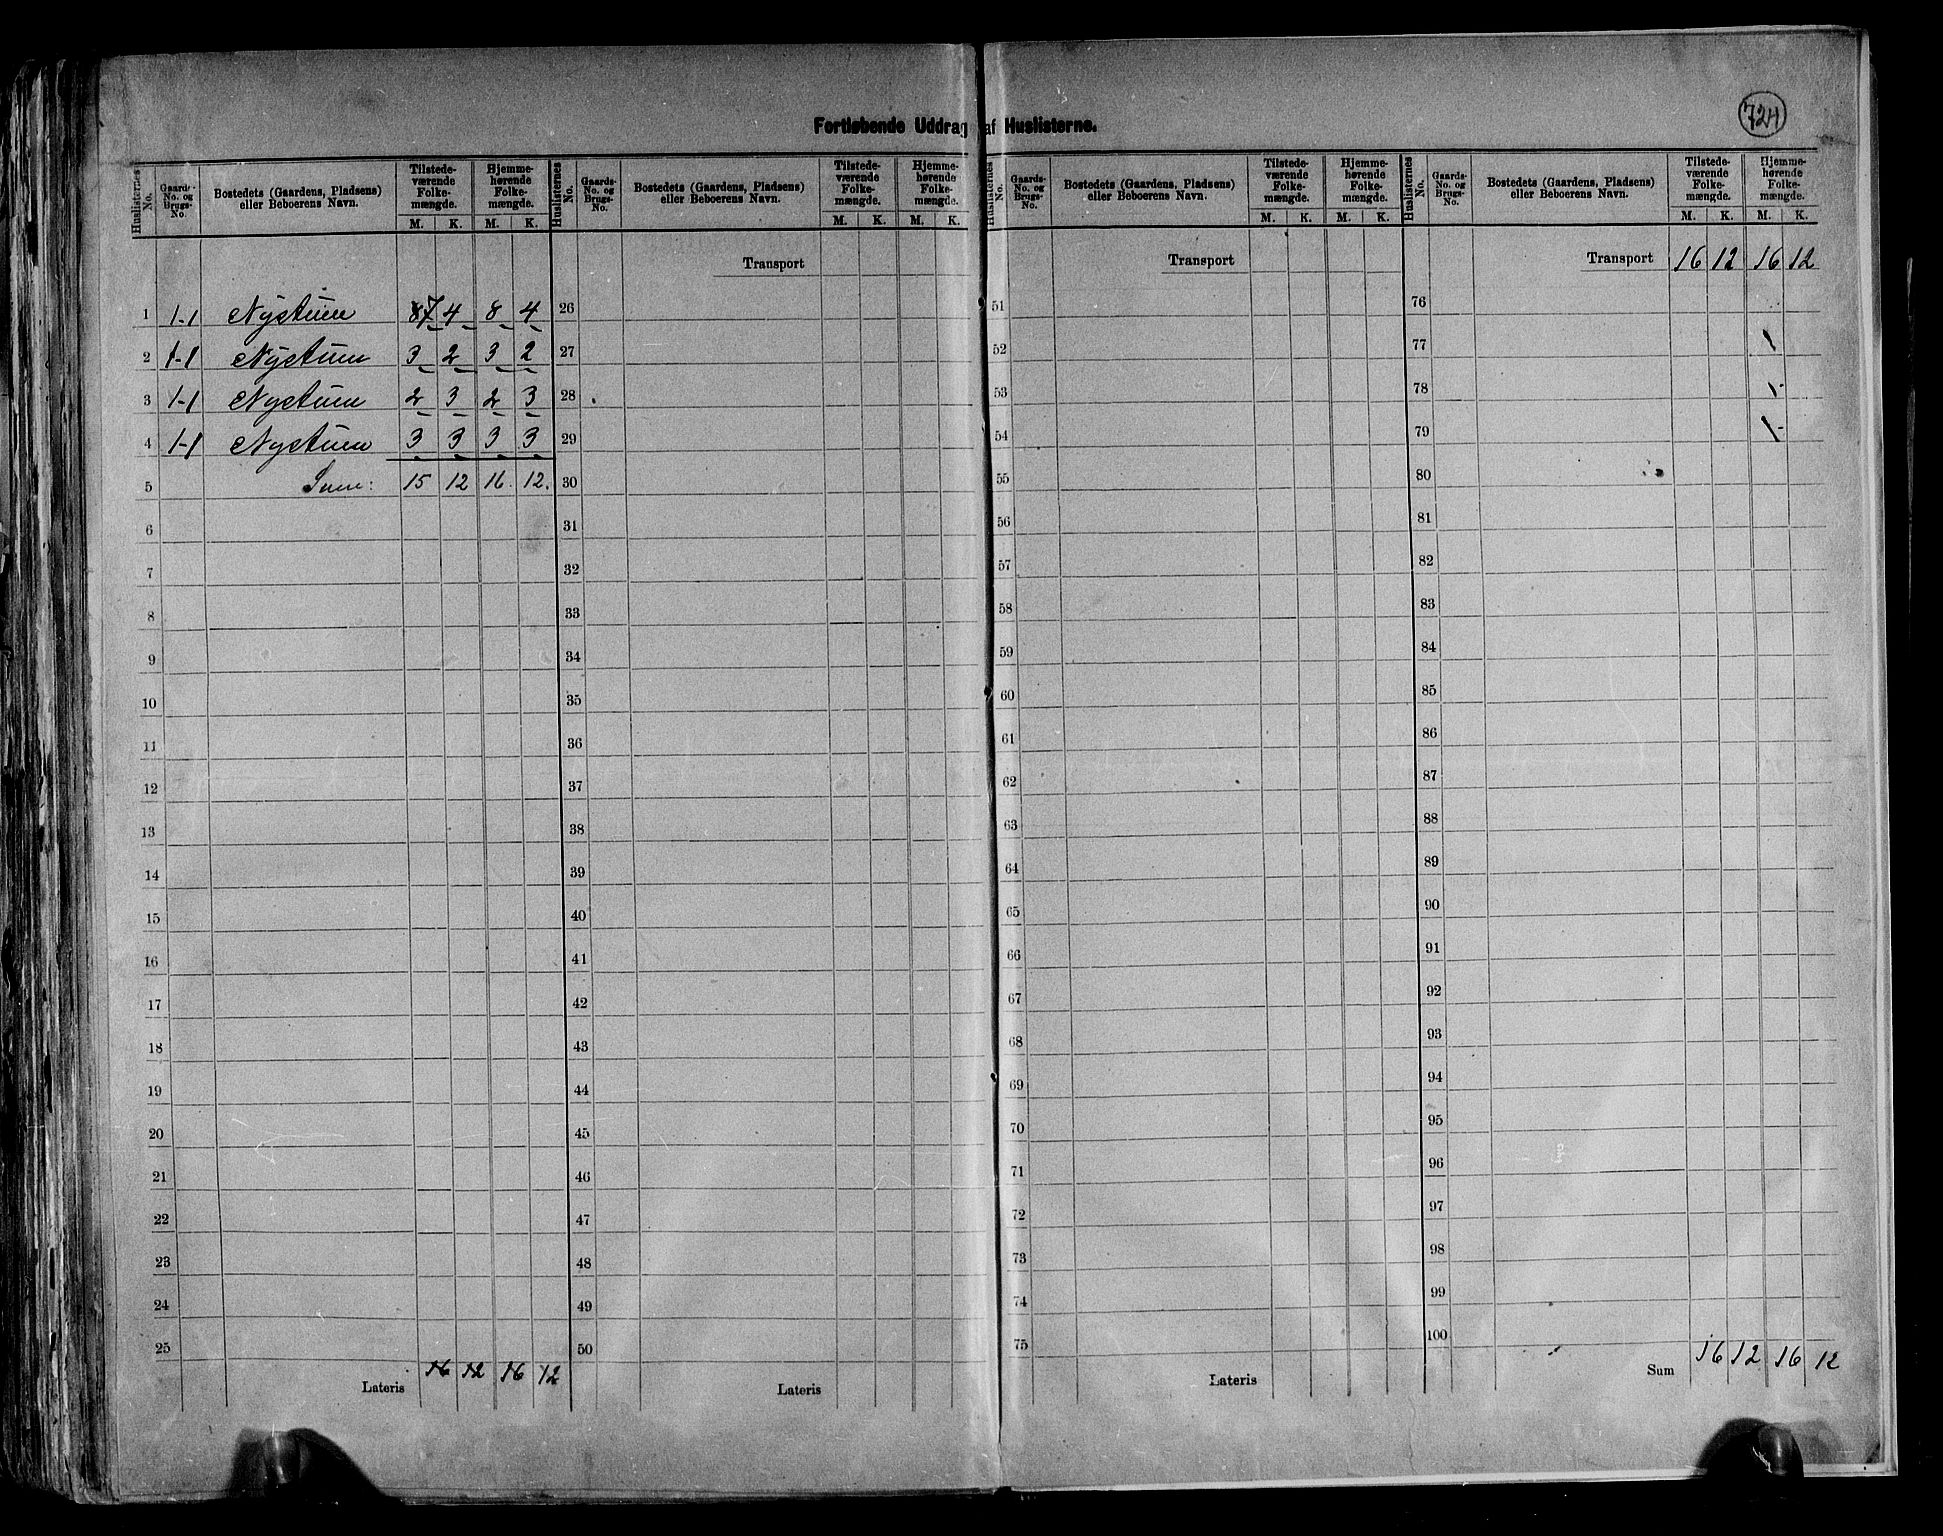 724
Fortløbende Uddrag af Huslisterne.
Huslisternes No. | Gaards-No. og Brugs-No. | Bostedets (Gaardens, Pladsens) eller Beboerens Navn. | Tilstedeværende Folkemængde. M. K. | Hjemmehørende Folkemængde. M. K.
Huslisternes No. | Gaards-No. og Brugs-No. | Bostedets (Gaardens, Pladsens) eller Beboerens Navn. | Tilstedeværende Folkemængde. M. K. | Hjemmehørende Folkemængde. M. K.
Huslisternes No. | Gaards-No. og Brugs-No. | Bostedets (Gaardens, Pladsens) eller Beboerens Navn. | Tilstedeværende Folkemængde. M. K. | Hjemmehørende Folkemængde. M. K.
Huslisternes No. | Gaards-No. og Brugs-No. | Bostedets (Gaardens, Pladsens) eller Beboerens Navn. | Tilstedeværende Folkemængde. M. K. | Hjemmehørende Folkemængde. M. K.
1 1-1 Nystuen 87 4 8 4
2 1-1 Nystuen 3 2 3 2
3 1-1 Nystuen 2 3 2 3
4 1-1 Nystuen 3 3 3 3
5 Sum: 15 12 16. 12.
6
7
8
9
10
11
12
13
14
15
16
17
18
19
20
21
22
23
24
25
Lateris 16 12 16 12
Transport
26
27
28
29
30
31
32
33
34
35
36
37
38
39
40
41
42
43
44
45
46
47
48
49
50
Lateris
Transport
51
52
53
54
55
56
57
58
59
60
61
62
63
64
65
66
67
68
69
70
71
72
73
74
75
Lateris
Transport 16 12 16 12
76
77
78
79
80
81
82
83
84
85
86
87
88
89
90
91
92
93
94
95
96
97
98
99
100
Sum 16 12 16 12